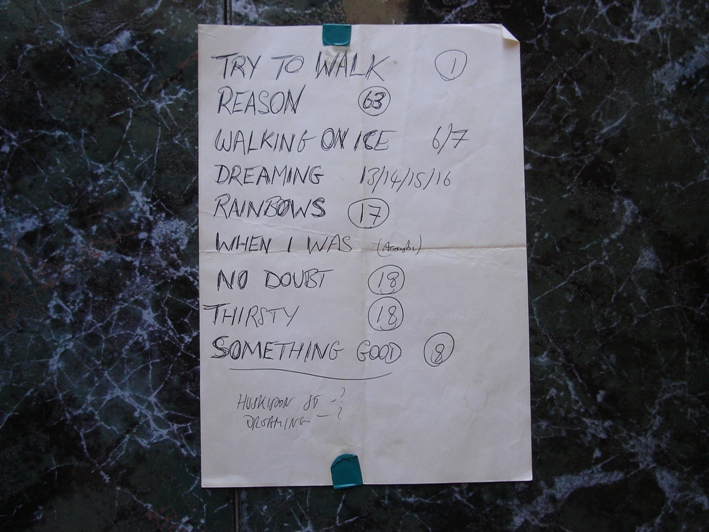 TRY TO WALK 1
REASON 63
WALKING ON ICE 6/7
DREAMING 13/14/15/16
RAINBOWS 17
WHEN I WAS (Acoustic)
NO DOUBT 18
THIRSTY 18
SOMETHING GOOD 8
HUSKISSON ST - ?
DREAMING - ?